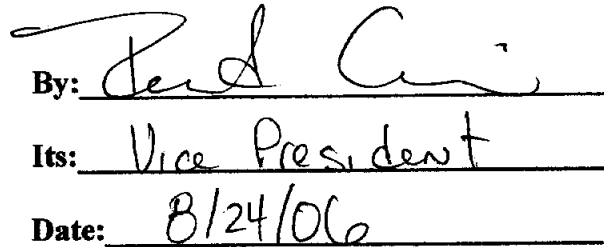 By:
Its: Vice President
Date: 8/24/06